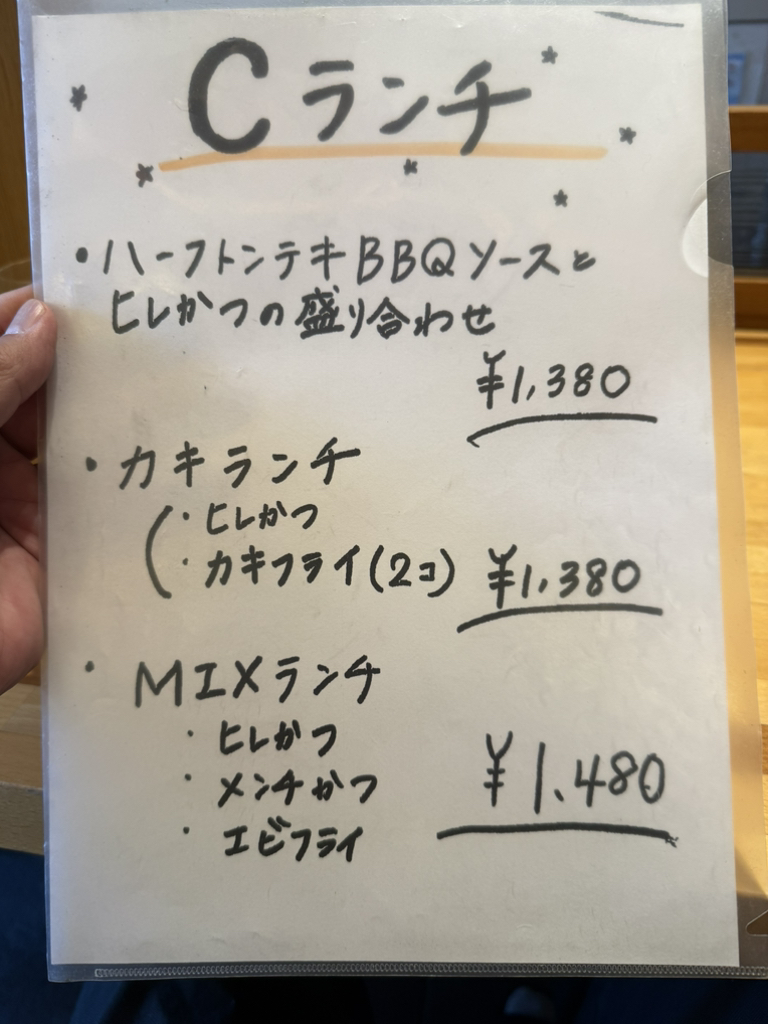 Cランチ
・ハーフトンテキBBQソースと
ヒレかつの盛り合わせ
¥1,380
・カキランチ
・ヒレかつ
・カキフライ(2コ) ¥1,380
・MIXランチ
・ヒレかつ
・メンチかつ ¥1,480
・エビフライ